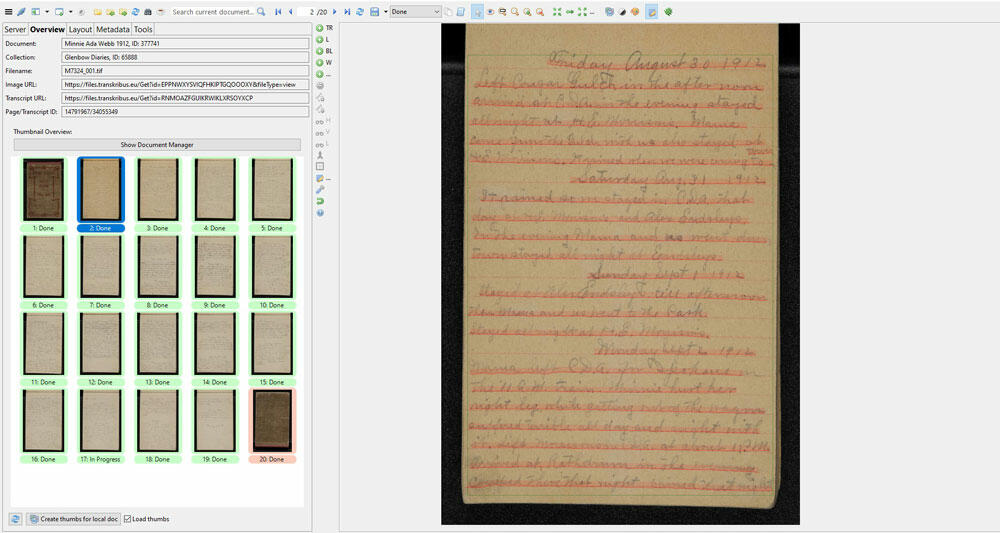 Search current document...
2 /20
Done
Server Overview Layout Metadata Tools
Document: Minnie Ada Webb 1912, ID: 377741
Collection: Glenbow Diaries, ID: 65888
Filename: M7324_001.tif
Image URL: https://files.transkribus.eu/Get?id=EPPNWXYSVIQFHKIPTGQOOOXY&fileType=view
Transcript URL: https://files.transkribus.eu/Get?id=RNMOAZFGUIKRWIKLXRSOYXCP
Page/Transcript ID: 14791967/34055349
Thumbnail Overview:
Show Document Manager
1: Done
2: Done
3: Done
4: Done
5: Done
6: Done
7: Done
8: Done
9: Done
10: Done
11: Done
12: Done
13: Done
14: Done
15: Done
16: Done
17: In Progress
18: Done
19: Done
20: Done
Create thumbs for local doc
Load thumbs
TR
L
BL
W
...
H
V
L
...
Friday August 30 1912
Left Cougar Gulch in the after noon
arrived at C.D.A. in the evening stayed
all night at H.E. Morrisons. Mama
came from the with us also stayed at
H.E. Rained when we were going to
town
Saturday Aug. 31 1912
It rained so we stayed in C.D.A. that
day at Morrisons and Alex Endsleys.
In the evening Mama and us went down
town stayed all night at Endsleys.
Sunday Sept 1 1912
Stayed at Alex Endsleys till afternoon
then Mama and us went to the Park.
Stayed all night at H.E. Morrisons.
Monday Sept 2 1912
Mama left C.D.A. for Spokane on
the 11 train. Minnie hurt her
right leg while getting out of the wagon
suffered terrible all day and night with
it. Left Morrisons C.D.A. at about
arrived at Rathdrum in the evening
camped there that night. rained that night